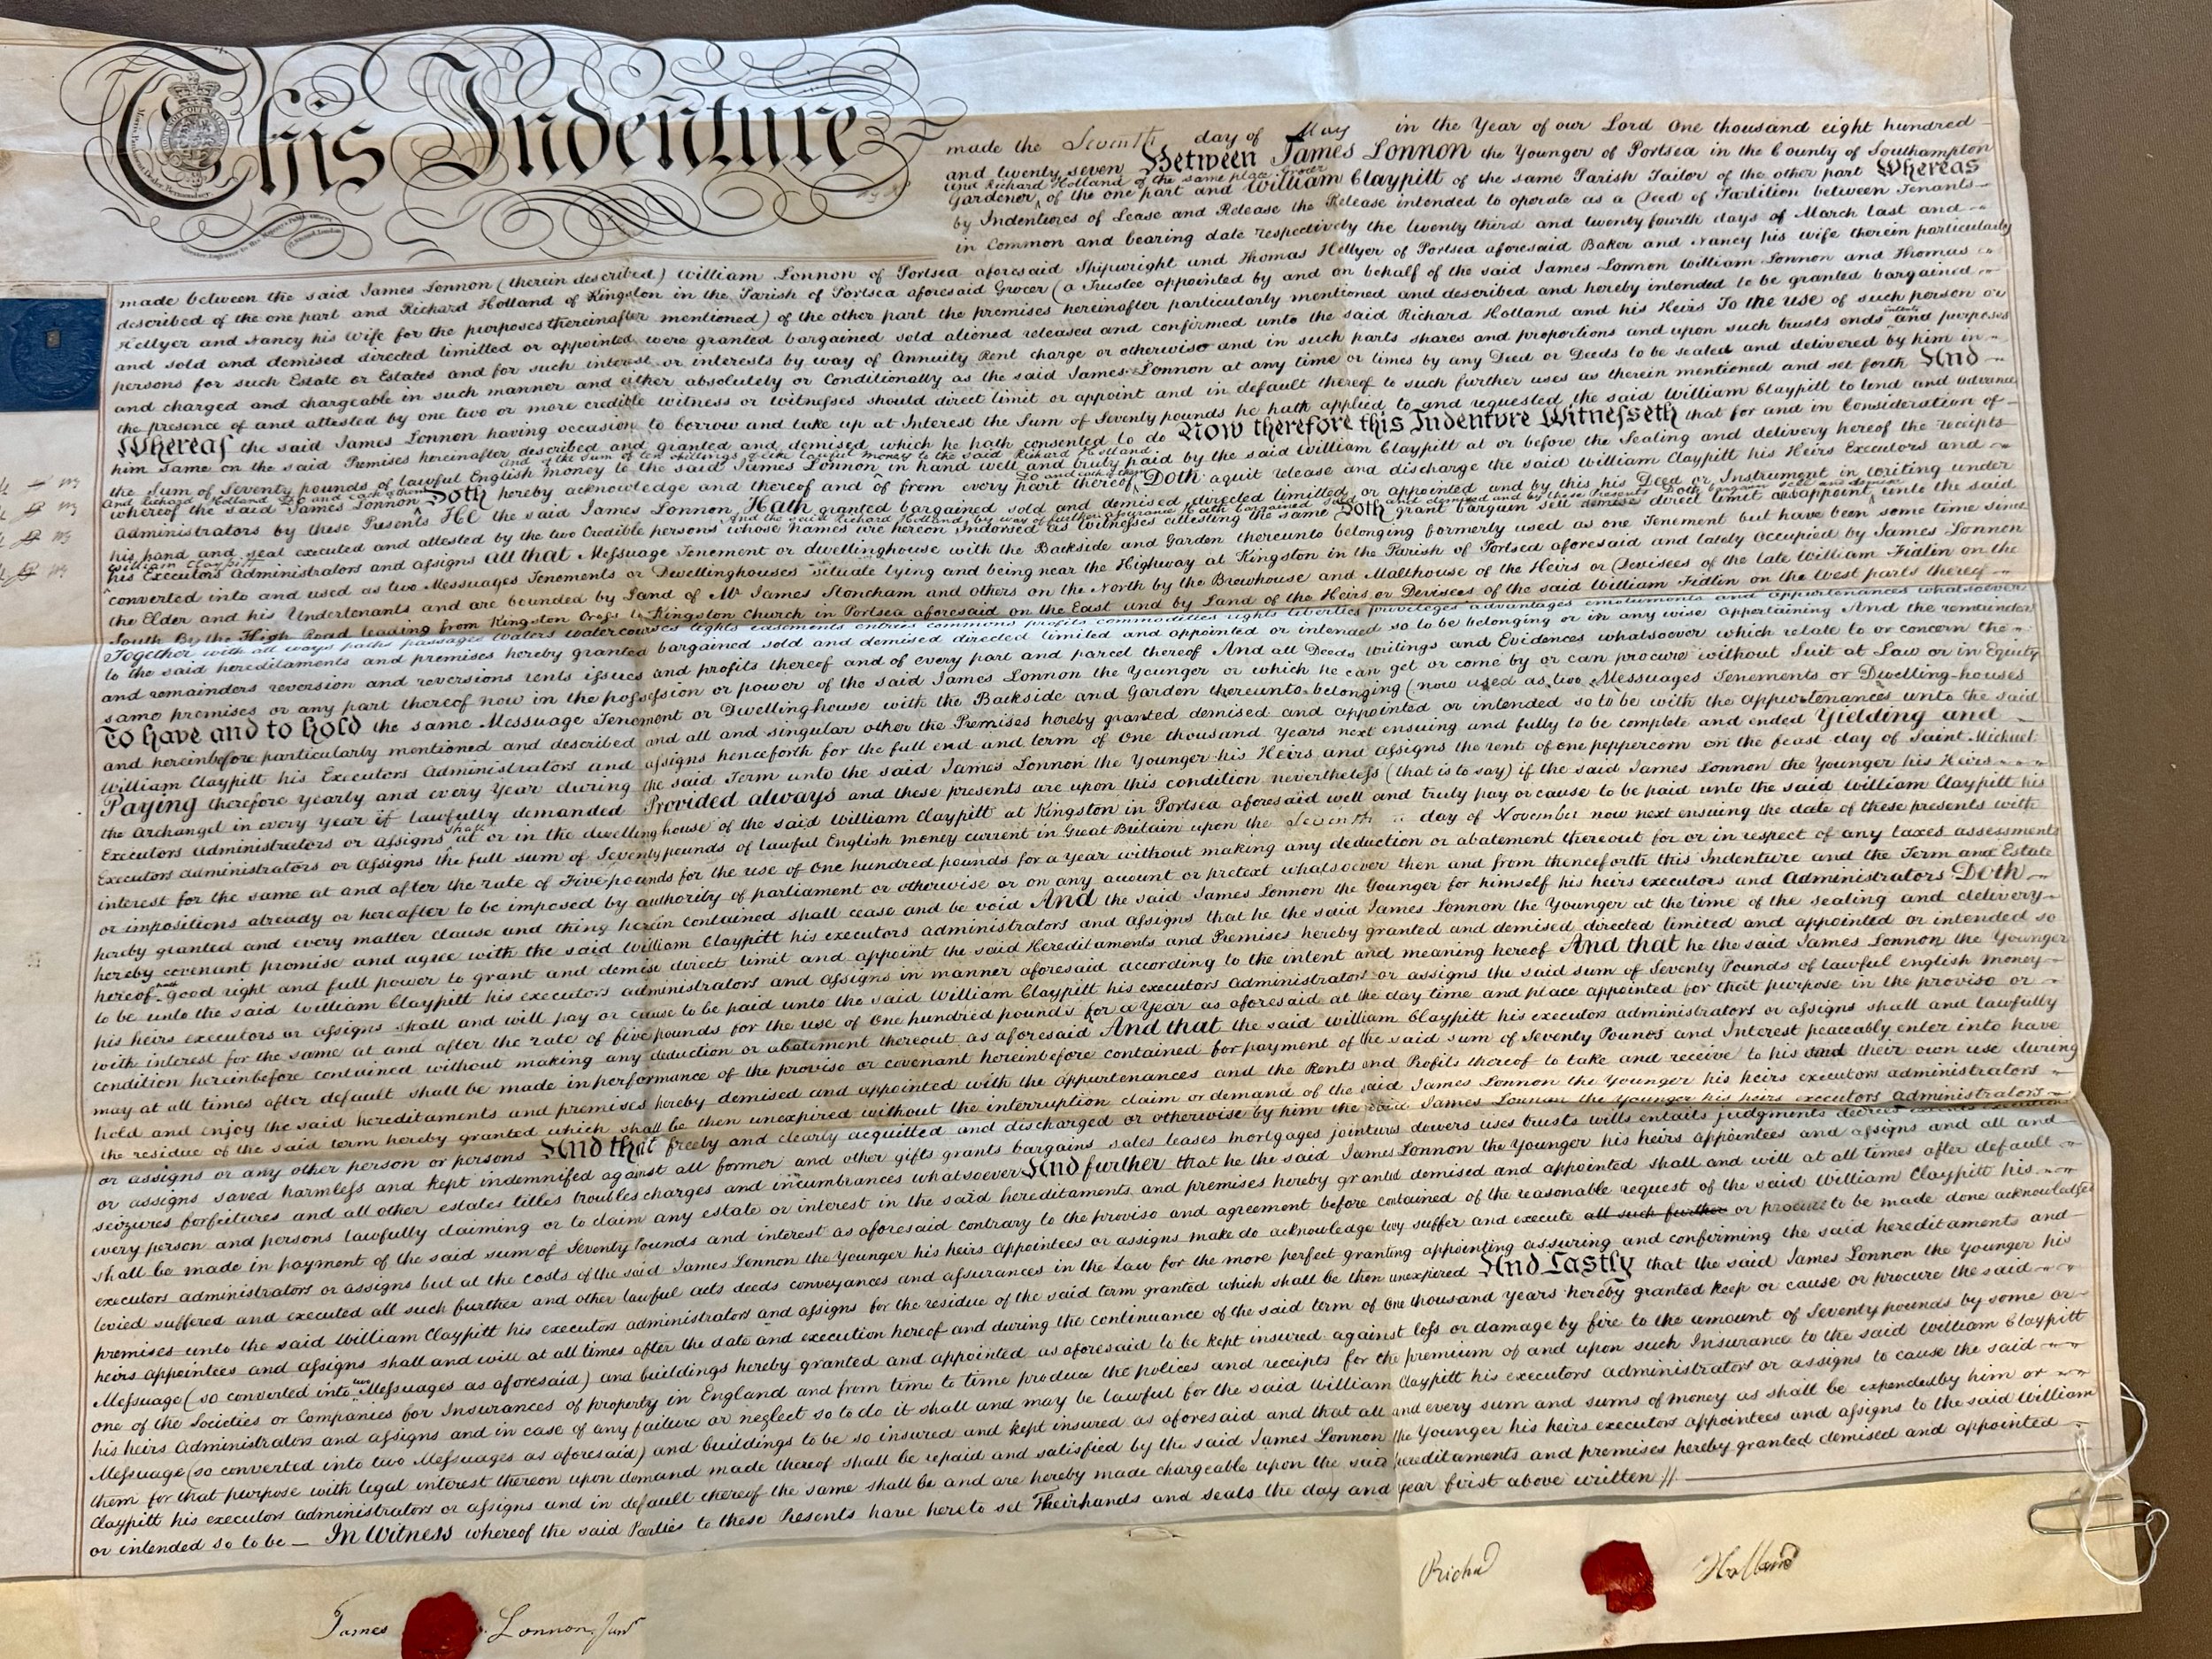 This Indenture
made the Seventh day of May in the Year of our Lord One thousand eight hundred
and twenty seven Between James Lonnon the Younger of Portsea in the County of Southampton
and Richard Holland of the same place Grocer
Gardener of the one part and William Claypitt of the same Parish Tailor of the other part Whereas
by Indentures of Lease and Release the Release intended to operate as a Deed of Partition between Tenants
in Common and bearing date respectively the twenty third and twenty fourth days of March last and
made between the said James Lonnon (therein described) William Lonnon of Portsea aforesaid Shipwright and Thomas Hellyer of Portsea aforesaid Baker and Nancy his wife therein particularly
described of the one part and Richard Holland of Kingston in the Parish of Portsea aforesaid Grocer (a Trustee appointed by and on behalf of the said James Lonnon William Lonnon and Thomas
Hellyer and Nancy his Wife for the purposes thereinafter mentioned) of the other part the premises hereinafter particularly mentioned and described and hereby intended to be granted bargained
and sold and demised directed limitted or appointed were granted bargained sold aliened released and confirmed unto the said Richard Holland and his Heirs To the use of such person or
persons for such Estate or Estates and for such interest or interests by way of Annuity Rent charge or otherwise and in such parts shares and proportions and upon such trusts ends intents and purposes
and charged and chargeable in such manner and either absolutely or Conditionally as the said James Lonnon at any time or times by any Deed or Deeds to be sealed and delivered by him in
the presence of and attested by one two or more credible witness or witnesses should direct limit or appoint and in default thereof to such further uses as therein mentioned and set forth And
Whereas the said James Lonnon having occasion to borrow and take up at Interest the Sum of Seventy pounds he hath applied to and requested the said William Claypitt to lend and advance
him same on the said Premises hereinafter described and granted and demised which he hath consented to do Now therefore this Indenture Witnesseth that for and in Consideration of
and of the sum of ten shillings of like lawful money to the said Richard Holland
the Sum of Seventy pounds of lawful English Money to the said James Lonnon in hand well and truly paid by the said William Claypitt at or before the Sealing and delivery hereof the receipts
and Richard Holland Do and each of them
whereof the said James Lonnon Doth hereby acknowledge and thereof and of from every part thereof Do and each of them Doth aquit release and discharge the said William Claypitt his Heirs Executors and
Administrators by these Presents He the said James Lonnon Hath granted bargained sold and demised directed limitted or appointed and by this his Deed or Instrument in Writing under
And the said Richard Holland by way of further assurance Hath bargained sold and demised and by these Presents Doth bargain sell and demise
his hand and seal executed and attested by the two Credible persons whose Names are hereon Indorsed as Witnesses attesting the same Doth grant bargain sell demise direct limit or appoint unto the said
William Claypitt
his Executors Administrators and assigns All that Messuage Tenement or dwellinghouse with the Backside and Garden thereunto belonging formerly used as one Tenement but have been some time since
converted into and used as two Messuages Tenements or Dwellinghouses situate lying and being near the Highway at Kingston in the Parish of Portsea aforesaid and lately Occupied by James Lonnon
the Elder and his Undertenants and are bounded by Land of Mr James Stoneham and others on the North by the Brewhouse and Malthouse of the Heirs or Devisees of the late William Fidlin on the
South By the High Road leading from Kingston Cross to Kingston Church in Portsea aforesaid on the East and by Land of the Heirs or Devisees of the said William Fidlin on the West parts thereof
Together with all ways paths passages waters watercourses lights easments entries commons profits commodities rights liberties privileges advantages emoluments and appurtenances whatsoever
to the said hereditaments and premises hereby granted bargained sold and demised directed limited and appointed or intended so to be belonging or in any wise Appertaining And the remainder
and remainders reversion and reversions rents issues and profits thereof and of every part and parcel thereof And all Deeds writings and Evidences whatsoever which relate to or concern the
same premises or any part thereof now in the possession or power of the said James Lonnon the Younger or which he can get or come by or can procure without Suit at Law or in Equity
To have and to hold the same Messuage Tenement or Dwellinghouse with the Backside and Garden thereunto belonging (now used as two Messuages Tenements or Dwelling-houses
and hereinbefore particularly mentioned and described and all and singular other the Premises hereby granted demised and appointed or intended so to be with the appurtenances unto the said
William Claypitt his Executors Administrators and assigns henceforth for the full end and term of One thousand Years next ensuing and fully to be complete and ended Yielding and
Paying therefore yearly and every Year during the said Term unto the said James Lonnon the Younger his Heirs and assigns the rent of one peppercorn on the feast day of Saint Michael
the Archangel in every year if lawfully demanded Provided always and these presents are upon this condition nevertheless (that is to say) if the said James Lonnon the Younger his Heirs
Executors Administrators or Assigns shall at or in the dwelling house of the said William Claypitt at Kingston in Portsea aforesaid well and truly pay or cause to be paid unto the said William Claypitt his
Executors Administrators or Assigns the full sum of Seventy pounds of lawful English Money current in Great Britain upon the Seventh day of November now next ensuing the date of these presents with
interest for the same at and after the rate of Five pounds for the use of One hundred pounds for a Year without making any deduction or abatement thereout for or in respect of any taxes assessments
or impositions already or hereafter to be imposed by authority of parliament or otherwise or on any acount or pretext whatsoever then and from thenceforth this Indenture and the Term and Estate
hereby granted and every matter clause and thing herein contained shall cease and be void And the said James Lonnon the Younger for himself his heirs executors and Administrators Doth
hereby covenant promise and agree with the said William Claypitt his executors administrators and assigns that he the said James Lonnon the Younger at the time of the sealing and delivery
hereof hath good right and full power to grant and demise direct limit and appoint the said Hereditaments and Premises hereby granted and demised directed limited and appointed or intended so
to be unto the said William Claypitt his executors administrators and assigns in manner aforesaid according to the intent and meaning hereof And that he the said James Lonnon the Younger
his heirs executors or assigns shall and will pay or cause to be paid unto the said William Claypitt his executors Administrators or assigns the said sum of Seventy Pounds of lawful english money
with interest for the same at and after the rate of five pounds for the use of One hundred pounds for a Year as aforesaid at the day time and place appointed for that purpose in the proviso or
condition hereinbefore contained without making any deduction or abatement thereout as aforesaid And that the said William Claypitt his executors administrators or assigns shall and lawfully
may at all times after default shall be made in performance of the proviso or covenant hereinbefore contained for payment of the said sum of Seventy Pounds and Interest peaceably enter into have
hold and enjoy the said hereditaments and premises hereby demised and appointed with the appurtenances and the Rents and Profits thereof to take and receive to his and their own use during
the residue of the said term hereby granted which shall be then unexpired without the interruption claim or demand of the said James Lonnon the Younger his heirs executors administrators
or assigns or any other person or persons And that freely and clearly acquitted and discharged or otherwise by him the said James Lonnon the Younger his heirs executors administrators
or assigns saved harmless and kept indemnifed against all former and other gifts grants bargains sales leases mortgages jointures dowers uses trusts wills entails judgments decrees executions
seizures forfeitures and all other estates titles troubles charges and incumbrances whatsoever And further that he the said James Lonnon the Younger his heirs appointees and assigns and all and
every person and persons lawfully claiming or to claim any estate or interest in the said hereditaments and premises hereby granted demised and appointed shall and will at all times after default
shall be made in payment of the said sum of Seventy Pounds and interest as aforesaid contrary to the proviso and agreement before contained of the reasonable request of the said William Claypitt his
executors administrators or assigns but at the costs of the said James Lonnon the Younger his heirs appointees or assigns make do acknowledge levy suffer and execute all such further or procure to be made done acknowledged
levied suffered and executed all such further and other lawful acts deeds conveyances and assurances in the Law for the more perfect granting appointing assuring and confirming the said hereditaments and
premises unto the said William Claypitt his executors administrators and assigns for the residue of the said term granted which shall be then unexpired And Lastly that the said James Lonnon the Younger his
heirs appointees and assigns shall and will at all times after the date and execution hereof and during the continuance of the said term of One thousand Years hereby granted keep or cause or procure the said
Messuage (so converted into two Messuages as aforesaid) and buildings hereby granted and appointed as aforesaid to be kept insured against loss or damage by fire to the amount of Seventy pounds by some or
one of the Societies or Companies for Insurances of property in England and from time to time produce the polices and receipts for the premium of and upon such Insurance to the said William Claypitt
his heirs Administrators and assigns and in case of any failure or neglect so to do it shall and may be lawful for the said William Claypitt his executors administrators or assigns to cause the said
Messuage (so converted into two Messuages as aforesaid) and buildings to be so insured and kept insured as aforesaid and that all and every sum and sums of money as shall be expended by him or
them for that purpose with legal interest thereon upon demand made thereof shall be repaid and satisfied by the said James Lonnon the Younger his heirs executors appointees and assigns to the said William
Claypitt his executors administrators or assigns and in default thereof the same shall be and are hereby made chargeable upon the said hereditaments and premises hereby granted demised and appointed
or intended so to be In Witness whereof the said Parties to these Presents have hereto set Their hands and seals the day and year first above written //
Richd Holland
James Lonnon Junr